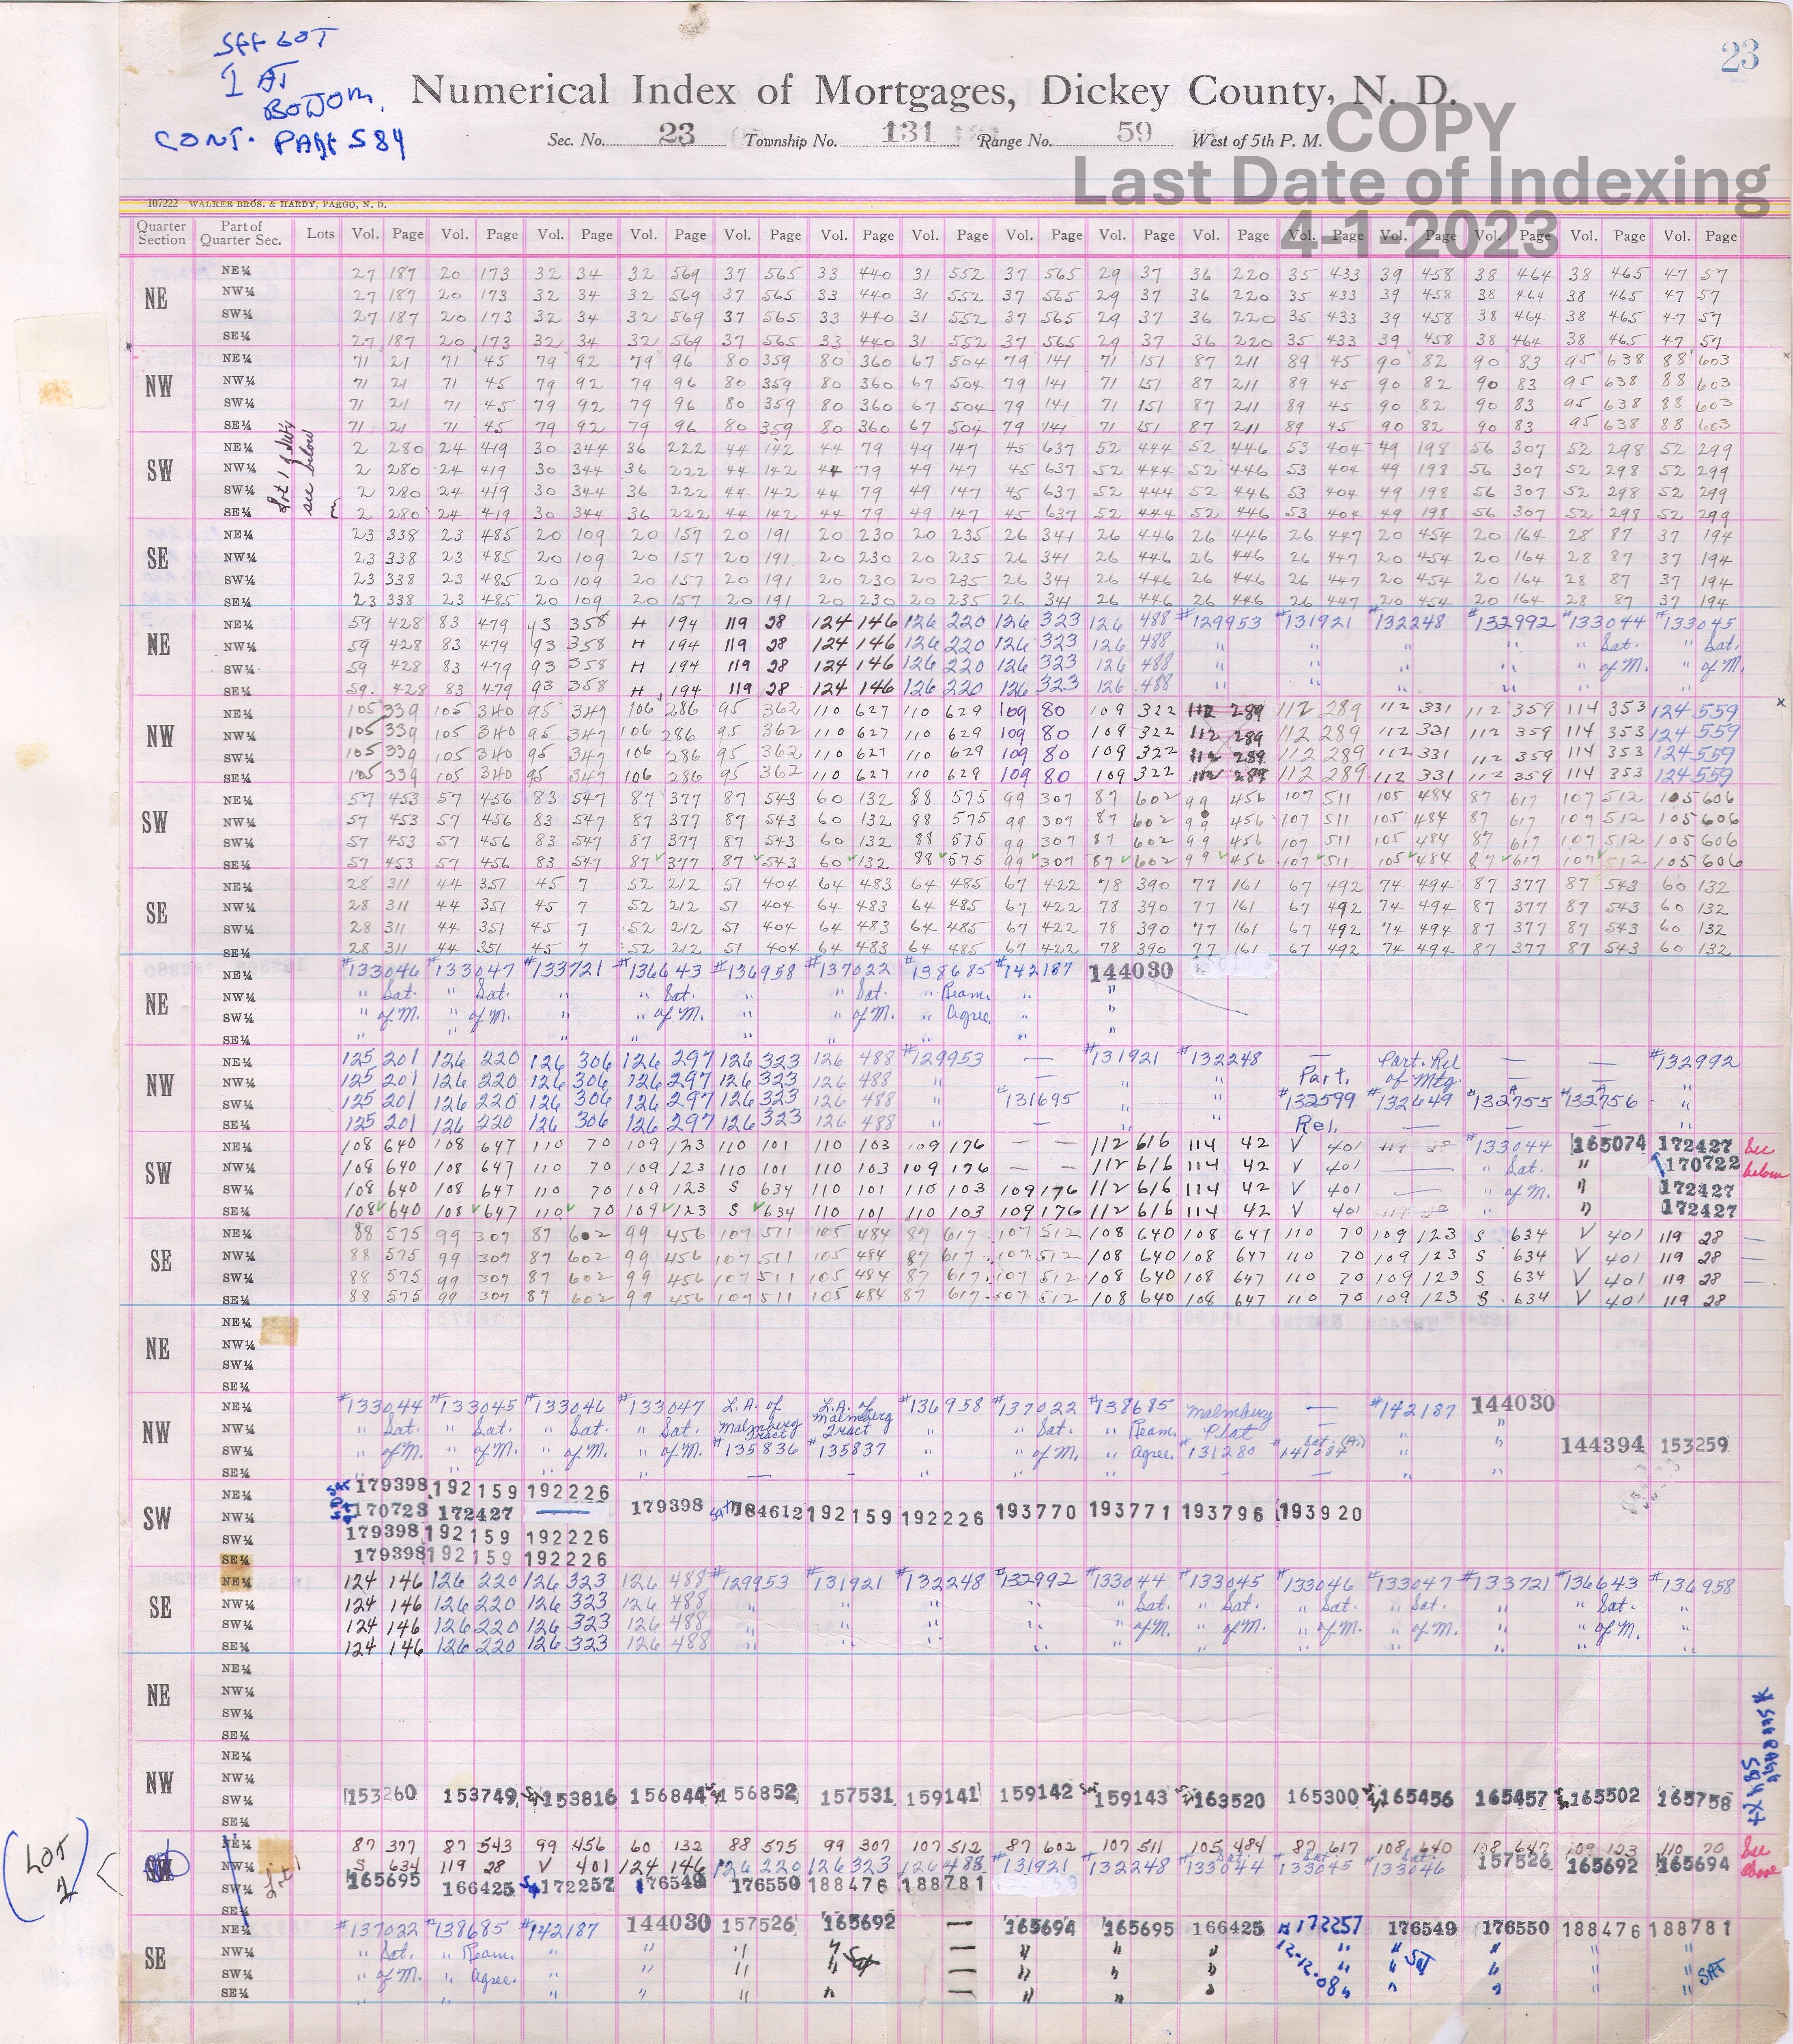 SEE LOT
1 AT
BOTTOM.
CONT. PAGE 584
23
Numerical Index of Mortgages, Dickey County, N. D.
Sec. No. 23 Township No. 131 Range No. 59 West of 5th P. M.
COPY
Last Date of Indexing
4-1-2023
107222 WALKER BROS. & HARDY, FARGO, N. D.
Quarter Section Part of Quarter Sec. Lots Vol. Page Vol. Page Vol. Page Vol. Page Vol. Page Vol. Page Vol. Page Vol. Page Vol. Page Vol. Page Vol. Page Vol. Page Vol. Page Vol. Page Vol. Page
NE
NE¼ 27 187 20 173 32 34 32 569 37 565 33 440 31 552 37 565 29 37 36 220 35 433 39 458 38 464 38 465 47 57
NW¼ 27 187 20 173 32 34 32 569 37 565 33 440 31 552 37 565 29 37 36 220 35 433 39 458 38 464 38 465 47 57
SW¼ 27 187 20 173 32 34 32 569 37 565 33 440 31 552 37 565 29 37 36 220 35 433 39 458 38 464 38 465 47 57
SE¼ 27 187 20 173 32 34 32 569 37 565 33 440 31 552 37 565 29 37 36 220 35 433 39 458 38 464 38 465 47 57
NW
NE¼ 71 21 71 45 79 92 79 96 80 359 80 360 67 504 79 141 71 151 87 211 89 45 90 82 90 83 95 638 88 603
NW¼ 71 21 71 45 79 92 79 96 80 359 80 360 67 504 79 141 71 151 87 211 89 45 90 82 90 83 95 638 88 603
SW¼ 71 21 71 45 79 92 79 96 80 359 80 360 67 504 79 141 71 151 87 211 89 45 90 82 90 83 95 638 88 603
SE¼ 71 21 71 45 79 92 79 96 80 359 80 360 67 504 79 141 71 151 87 211 89 45 90 82 90 83 95 638 88 603
SW
see below
NE¼ 2 280 24 419 30 344 36 222 44 142 44 79 49 147 45 637 52 444 52 446 53 404 49 198 56 307 52 298 52 299
NW¼ 2 280 24 419 30 344 36 222 44 142 44 79 49 147 45 637 52 444 52 446 53 404 49 198 56 307 52 298 52 299
SW¼ 2 280 24 419 30 344 36 222 44 142 44 79 49 147 45 637 52 444 52 446 53 404 49 198 56 307 52 298 52 299
SE¼ 2 280 24 419 30 344 36 222 44 142 44 79 49 147 45 637 52 444 52 446 53 404 49 198 56 307 52 298 52 299
SE
NE¼ 23 338 23 485 20 109 20 157 20 191 20 230 20 235 26 341 26 446 26 446 26 447 20 454 20 164 28 87 37 194
NW¼ 23 338 23 485 20 109 20 157 20 191 20 230 20 235 26 341 26 446 26 446 26 447 20 454 20 164 28 87 37 194
SW¼ 23 338 23 485 20 109 20 157 20 191 20 230 20 235 26 341 26 446 26 446 26 447 20 454 20 164 28 87 37 194
SE¼ 23 338 23 485 20 109 20 157 20 191 20 230 20 235 26 341 26 446 26 446 26 447 20 454 20 164 28 87 37 194
NE
NE¼ 59 428 83 479 93 358 H 194 119 28 124 146 126 220 126 323 126 488 #129953 #131921 #132248 #132992 #133044 #133045
NW¼ 59 428 83 479 93 358 H 194 119 28 124 146 126 220 126 323 126 488 " " " " " Sat. " Sat.
SW¼ 59 428 83 479 93 358 H 194 119 28 124 146 126 220 126 323 126 488 " " " " " of M. " of M.
SE¼ 59 428 83 479 93 358 H 194 119 28 124 146 126 220 126 323 126 488 " " " " " "
NW
NE¼ 105 339 105 340 95 347 106 286 95 362 110 627 110 629 109 80 109 322 112 289 112 289 112 331 112 359 114 353 124 559
NW¼ 105 339 105 340 95 347 106 286 95 362 110 627 110 629 109 80 109 322 112 289 112 289 112 331 112 359 114 353 124 559
SW¼ 105 339 105 340 95 347 106 286 95 362 110 627 110 629 109 80 109 322 112 289 112 289 112 331 112 359 114 353 124 559
SE¼ 105 339 105 340 95 347 106 286 95 362 110 627 110 629 109 80 109 322 112 289 112 289 112 331 112 359 114 353 124 559
SW
NE¼ 57 453 57 456 83 547 87 377 87 543 60 132 88 575 99 307 87 602 99 456 107 511 105 484 87 617 107 512 105 606
NW¼ 57 453 57 456 83 547 87 377 87 543 60 132 88 575 99 307 87 602 99 456 107 511 105 484 87 617 107 512 105 606
SW¼ 57 453 57 456 83 547 87 377 87 543 60 132 88 575 99 307 87 602 99 456 107 511 105 484 87 617 107 512 105 606
SE¼ 57 453 57 456 83 547 87 377 87 543 60 132 88 575 99 307 87 602 99 456 107 511 105 484 87 617 107 512 105 606
SE
NE¼ 28 311 44 351 45 7 52 212 51 404 64 483 64 485 67 422 78 390 77 161 67 492 74 494 87 377 87 543 60 132
NW¼ 28 311 44 351 45 7 52 212 51 404 64 483 64 485 67 422 78 390 77 161 67 492 74 494 87 377 87 543 60 132
SW¼ 28 311 44 351 45 7 52 212 51 404 64 483 64 485 67 422 78 390 77 161 67 492 74 494 87 377 87 543 60 132
SE¼ 28 311 44 351 45 7 52 212 51 404 64 483 64 485 67 422 78 390 77 161 67 492 74 494 87 377 87 543 60 132
NE
NE¼ #133046 #133047 #133721 #136643 #136958 #137022 #138685 #142187 144030
NW¼ " Sat. " Sat. " " Sat. " " Sat. " Ream. " "
SW¼ " of M. " of M. " " of M. " " of M. " Agree. " "
SE¼ " " " " " " " " "
NW
NE¼ 125 201 126 220 126 306 126 297 126 323 126 488 #129953 — #131921 #132248 — Part. Rel — — #132992
NW¼ 125 201 126 220 126 306 126 297 126 323 126 488 " — " " Part. of Mtg. — — "
SW¼ 125 201 126 220 126 306 126 297 126 323 126 488 " #131695 " " #132599 #132649 #132755 #132756 "
SE¼ 125 201 126 220 126 306 126 297 126 323 126 488 " — " " Rel. — — — "
SW
NE¼ 108 640 108 647 110 70 109 123 110 101 110 103 109 176 — — 112 616 114 42 V 401 119 28 #133044 165074 172427 See
NW¼ 108 640 108 647 110 70 109 123 110 101 110 103 109 176 — — 112 616 114 42 V 401 — " Sat. " 170722 below
SW¼ 108 640 108 647 110 70 109 123 S 634 110 101 110 103 109 176 112 616 114 42 V 401 — " of M. " 172427
SE¼ 108 640 108 647 110 70 109 123 S 634 110 101 110 103 109 176 112 616 114 42 V 401 119 28 " " 172427
SE
NE¼ 88 575 99 307 87 602 99 456 107 511 105 484 87 617 107 512 108 640 108 647 110 70 109 123 S 634 V 401 119 28 —
NW¼ 88 575 99 307 87 602 99 456 107 511 105 484 87 617 107 512 108 640 108 647 110 70 109 123 S 634 V 401 119 28 —
SW¼ 88 575 99 307 87 602 99 456 107 511 105 484 87 617 107 512 108 640 108 647 110 70 109 123 S 634 V 401 119 28 —
SE¼ 88 575 99 307 87 602 99 456 107 511 105 484 87 617 107 512 108 640 108 647 110 70 109 123 S 634 V 401 119 28
NE
NE¼
NW¼
SW¼
SE¼
NW
NE¼ #133044 #133045 #133046 #133047 L.A. of L.A. of #136958 #137022 #138685 Malmberg — #142187 144030
NW¼ " Sat. " Sat. " Sat. " Sat. Malmberg Tract Malmberg Tract " " Sat. " Ream. Plat — " "
SW¼ " of M. " of M. " of M. " of M. #135836 #135837 " " of M. " Agree. #131280 Sat. (A.) #141084 " " 144394 153259
SE¼ " " " " — - " " " - — " "
SW
NE¼ SAT 179398 192159 192226
NW¼ SAT 170723 172427 — 179398 Sat 184612 192159 192226 193770 193771 193796 193920
SW¼ 179398 192159 192226
SE¼ 179398 192159 192226
SE
NE¼ 124 146 126 220 126 323 126 488 #129953 #131921 #132248 #132992 #133044 #133045 #133046 #133047 #133721 #136643 #136958
NW¼ 124 146 126 220 126 323 126 488 " " " " " Sat. " Sat. " Sat. " Sat. " " Sat. "
SW¼ 124 146 126 220 126 323 126 488 " " " " " of M. " of M. " of M. " of M. " " of M. "
SE¼ 124 146 126 220 126 323 126 488 " " " " " " " " " " "
NE
NE¼
NW¼
SW¼
SE¼
NW
NE¼
NW¼
SW¼ 153260 153749 153816 156844 156852 157531 159141 159142 159143 163520 165300 165456 165457 165502 165758
SE¼
* SEE PAGE 584
LOT 1
NE¼ 87 377 87 543 99 456 60 132 88 575 99 307 107 512 87 602 107 511 105 484 87 617 108 640 108 647 109 123 110 70 See
NW¼ Lot 1 S 634 119 28 V 401 124 146 126 220 126 323 126 488 #131921 #132248 #133044 #133045 #133046 157526 165692 165694 above
SW¼ 165695 166425 172257 176549 176550 188476 188781
SE¼
SE
NE¼ #137022 #138685 #142187 144030 157526 165692 — 165694 165695 166425 #172257 176549 176550 188476 188781
NW¼ " Sat. " Ream. " " " " Sat — " " " 12.12.08 " " SAT " " "
SW¼ " of M. " Agree. " " " " — " " " " " " " " SAT
SE¼ " " " " " " — " " " " " " " "